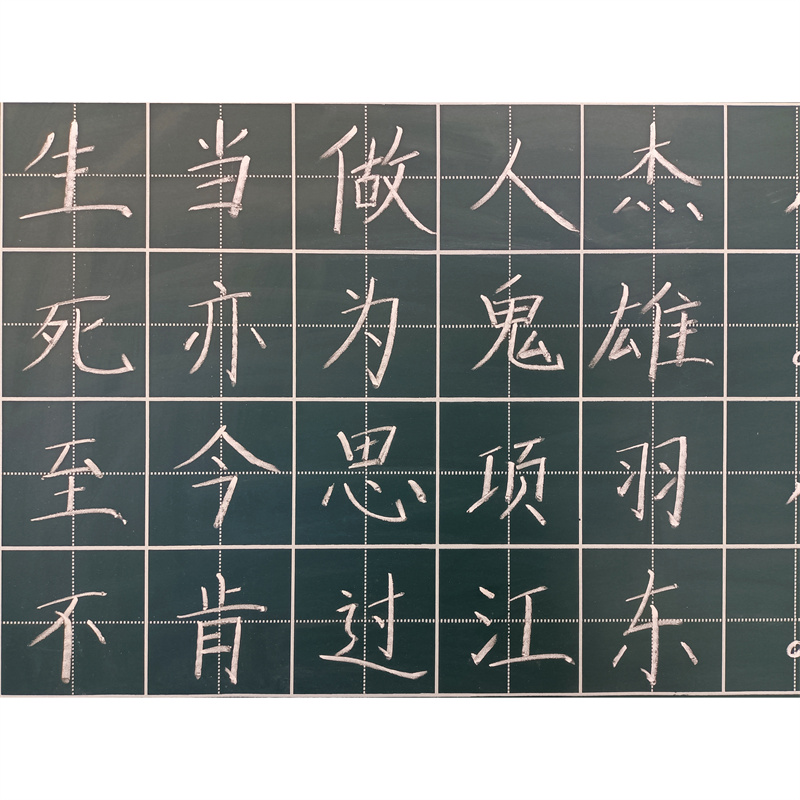 生当做人杰
死亦为鬼雄。
至今思项羽
不肯过江东。